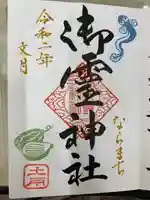 ならまち
御霊神社
令和二年
文月